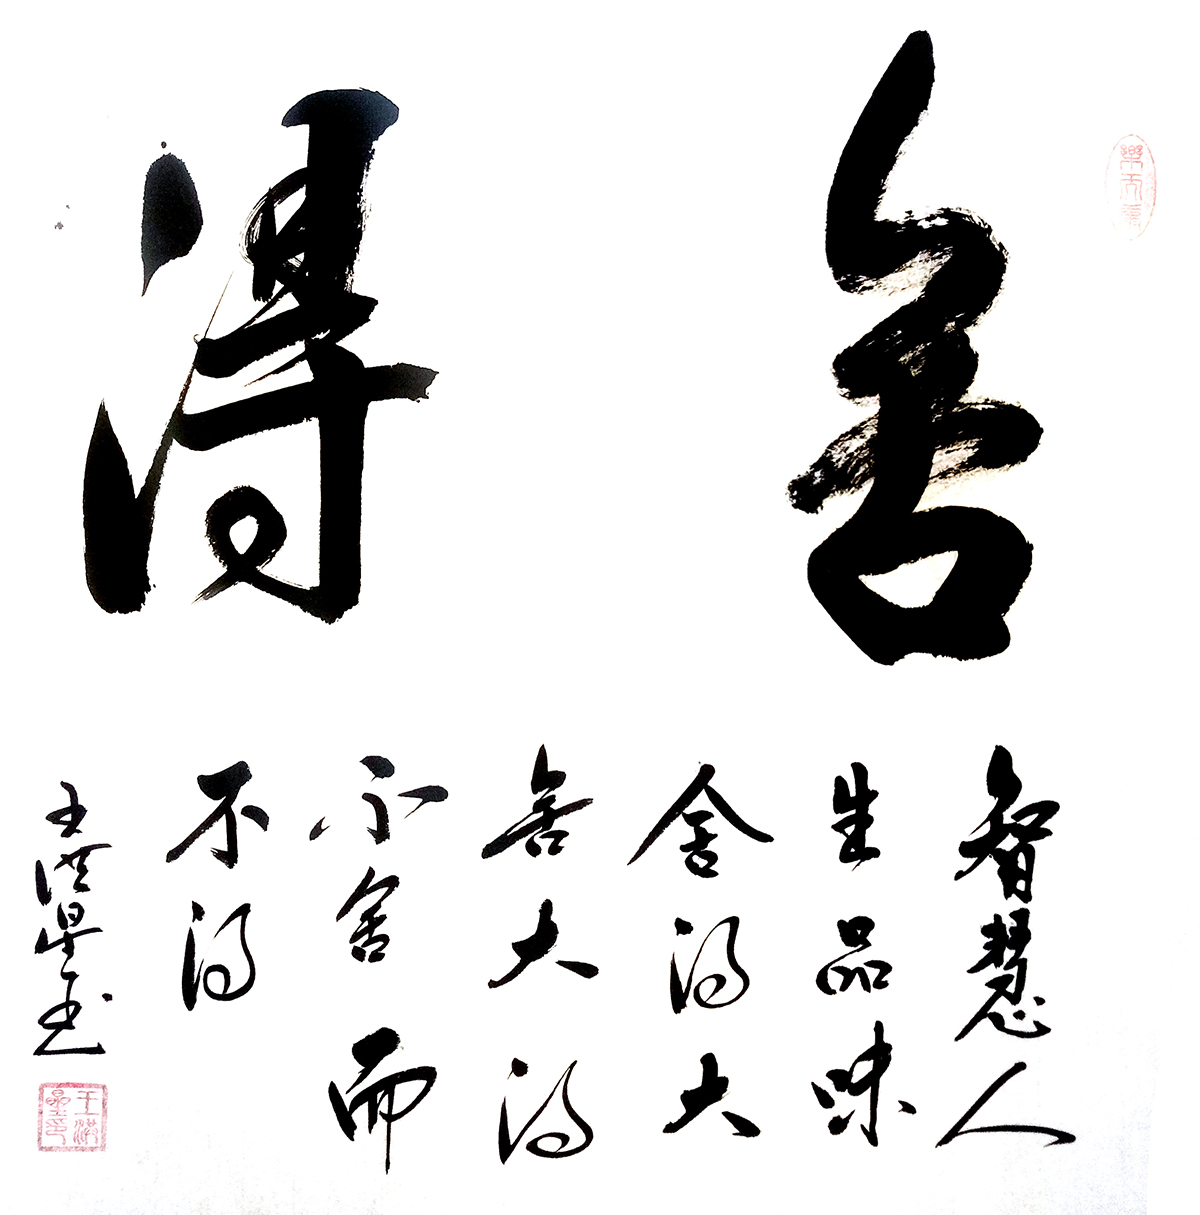 舍得
智慧人
生品味
舍得大
舍大得
不舍而
不得
王洪星书
王洪
星印